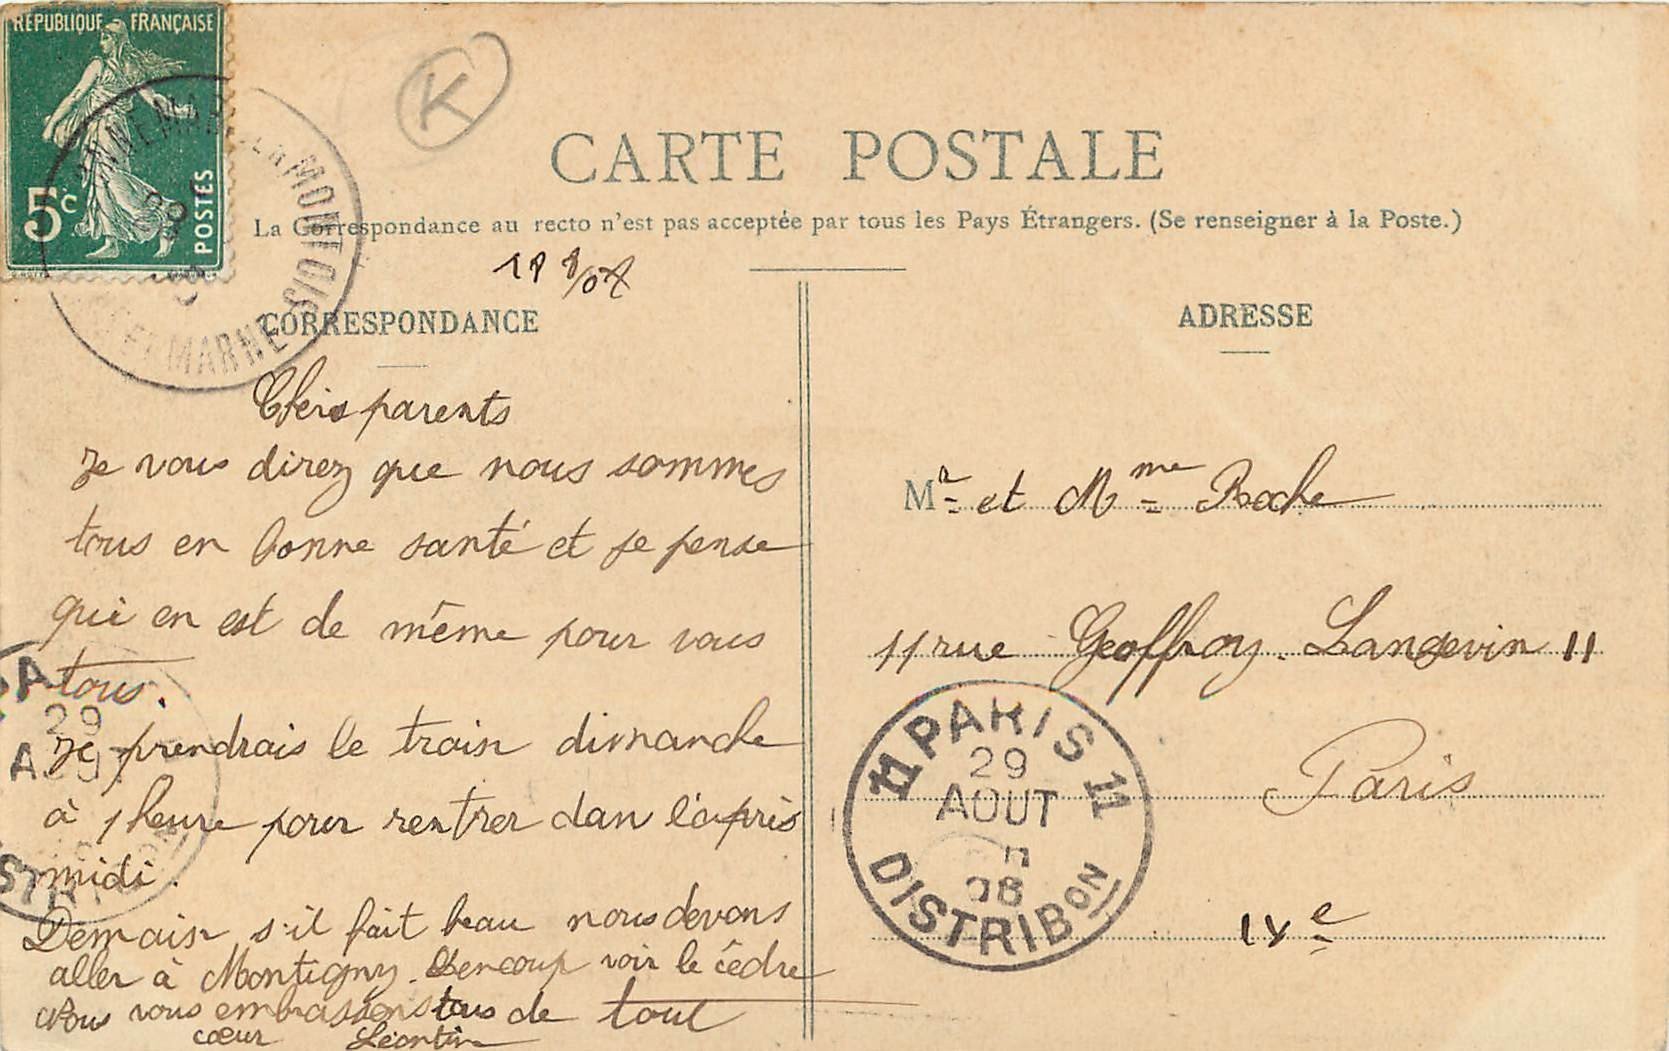 RÉPUBLIQUE FRANÇAISE
5c
POSTES
K
CARTE POSTALE
La Correspondance au recto n'est pas acceptée par tous les Pays Étrangers. (Se renseigner à la Poste.)
DONNEMARIE-EN-MONTOIS
ET MARNE
CORRESPONDANCE
Chèrs parents
Je vous direz que nous sommes
tous en bonne santé et je pense
qui en est de même pour vous
tous.
Je prendrais le train dimanche
à 1 heure pour rentrer dan l'après
midi.
Demain s'il fait beau nous devons
aller à Montigny. Lencoup voir le cèdre
Nous vous embrassons tous de tout
cœur Léontine
29
ADRESSE
Mr et Mme Roche
11 rue Geoffroy-Langevin 11
Paris
IVe
11 PARIS 11
29
AOUT
08
DISTRIBON